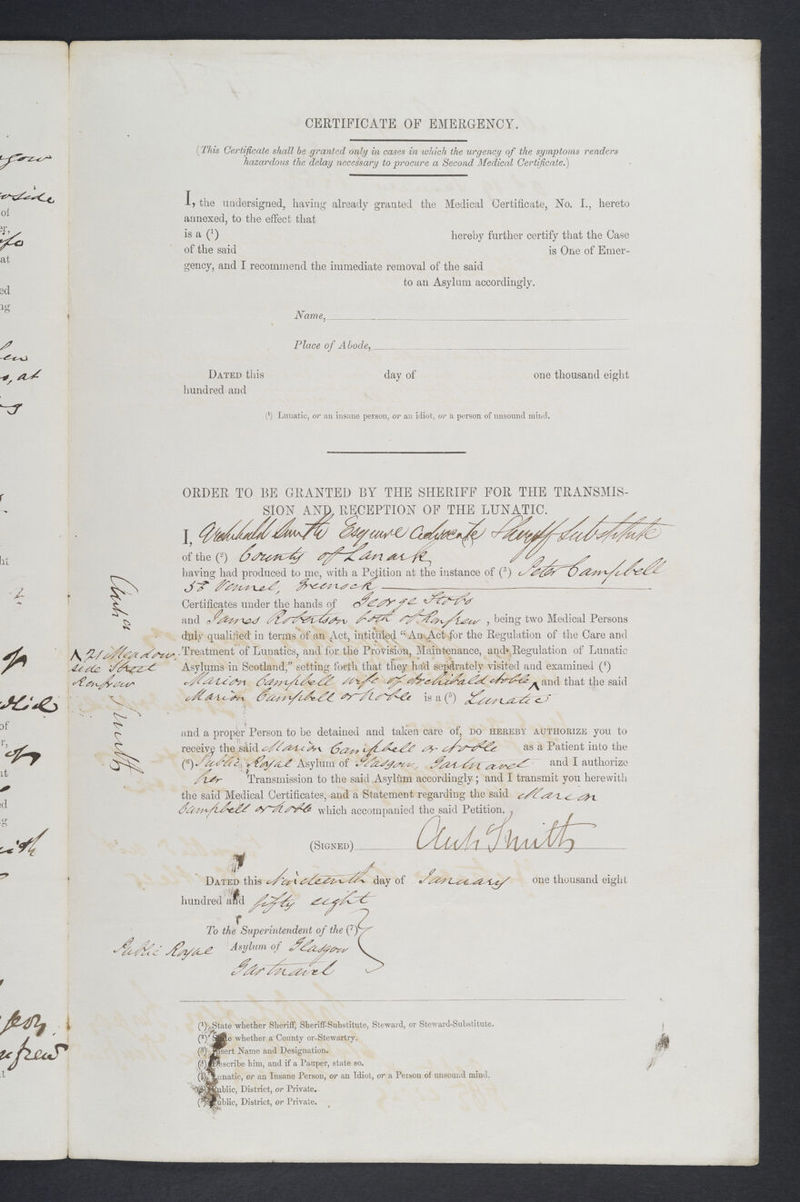 CERTIFICATE OF EMERGENCY.
(This Certificate shall be granted only in cases in which the urgency of the symptoms renders
hazardous the delay necessary to procure a Second Medical Certificate.)
I, the undersigned, having already granted the Medical Certificate, No. I., hereto
annexed, to the effect that
is a (¹) hereby further certify that the Case
of the said is One of Emer-
gency, and I recommend the immediate removal of the said
to an Asylum accordingly.
Name,
Place of Abode,
DATED this day of one thousand eight
hundred and
(¹) Lunatic, or an insane person, or an idiot, or a person of unsound mind.
ORDER TO BE GRANTED BY THE SHERIFF FOR THE TRANSMIS-
SION AND RECEPTION OF THE LUNATIC.
I, Archibald Smith Esquire Advocate Sheriff Substitute
of the (²) County of Lanark
having had produced to me, with a Petition at the instance of (³) Peter Campbell
Greenock
Certificates under the hands of George Stobo
and James Robertson both of Renfrew, being two Medical Persons
duly qualified in terms of an Act, intituled "An Act for the Regulation of the Care and
Treatment of Lunatics, and for the Provision, Maintenance, and Regulation of Lunatic
Asylums in Scotland," setting forth that they had separately visited and examined (⁴)
Marion Campbell wife of Archibald Noble and that the said
21 Meadow
side Street
Renfrew
Marion Campbell or Noble is a (⁵) Lunatic
and a proper Person to be detained and taken care of, DO HEREBY AUTHORIZE you to
receive the said Marion Campbell or Noble as a Patient into the
(⁶) Public Royal Asylum of Glasgow, Gartnavel and I authorize
her Transmission to the said Asylum accordingly; and I transmit you herewith
the said Medical Certificates, and a Statement regarding the said Marion
Campbell or Noble which accompanied the said Petition.
(SIGNED) Archd Smith
DATED this Nineteenth day of January one thousand eight
hundred and fifty eight
To the Superintendent of the (⁷)
Public Royal Asylum of Glasgow
Gartnavel
Archd Smith
(¹) State whether Sheriff, Sheriff-Substitute, Steward, or Steward-Substitute.
(²) State whether a County or Stewartry.
(³) Insert Name and Designation.
(⁴) Describe him, and if a Pauper, state so.
(⁵) Lunatic, or an Insane Person, or an Idiot, or a Person of unsound mind.
(⁶) Public, District, or Private.
(⁷) Public, District, or Private.